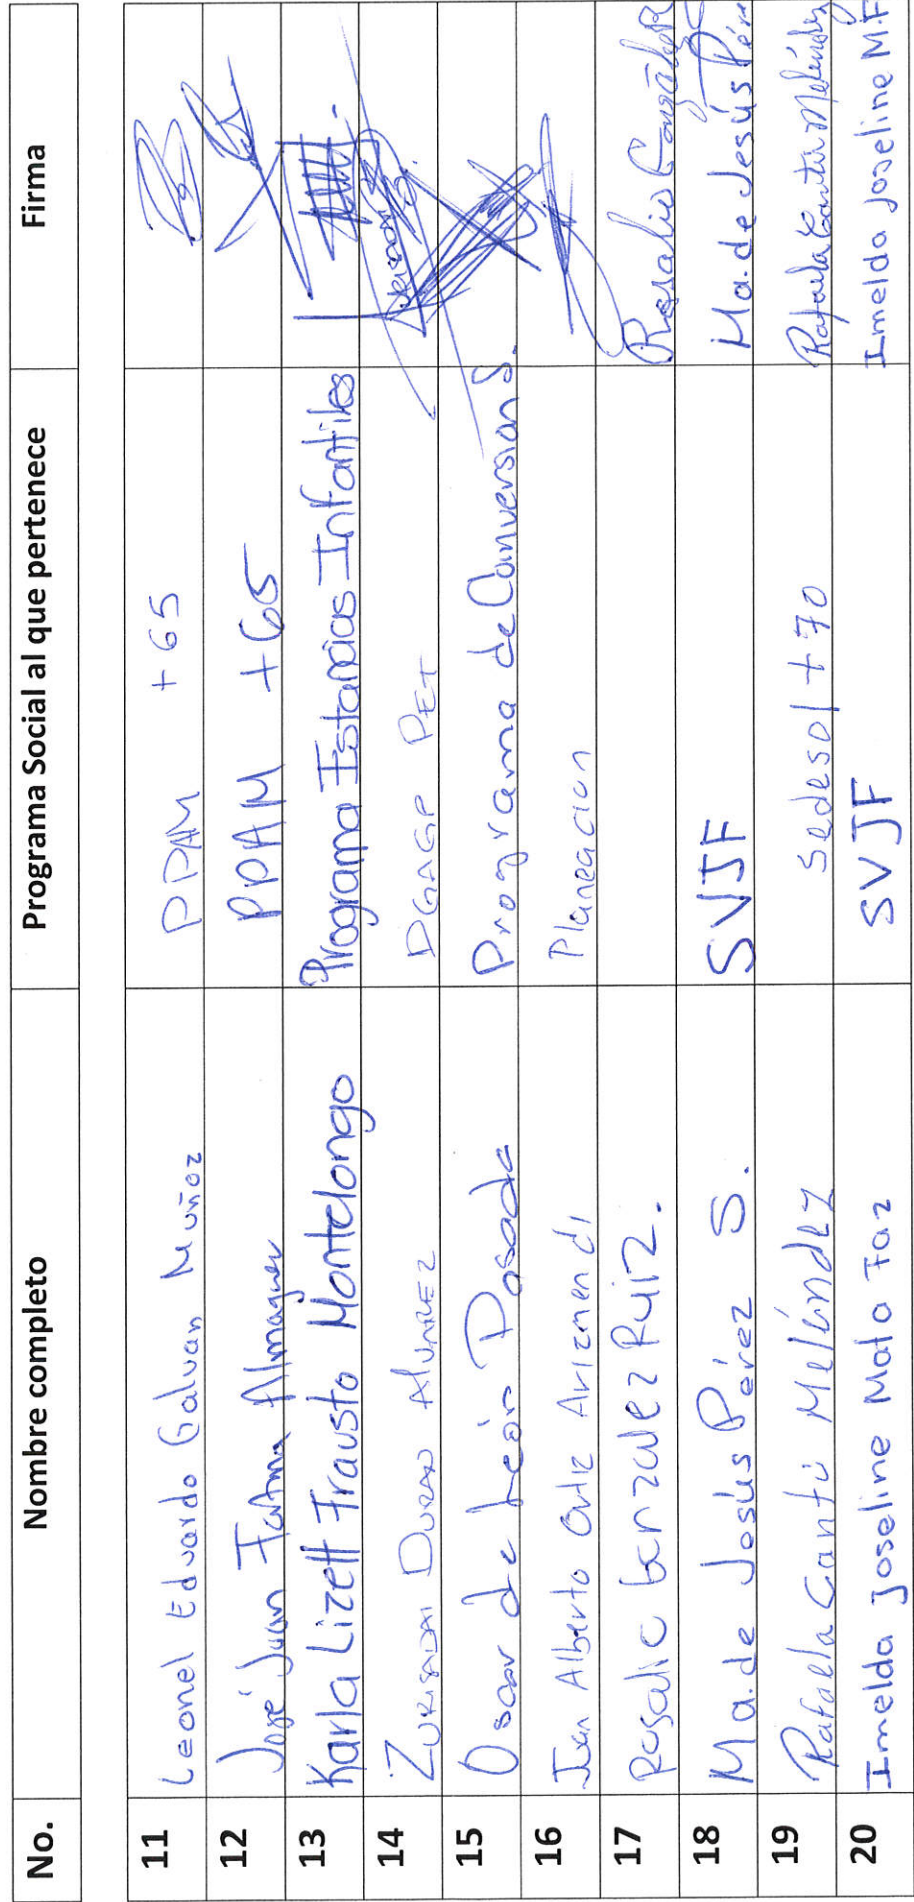 No. Nombre completo Programa Social al que pertenece Firma
11 Leonel Eduardo Galvan Muñoz PPAM +65
12 José Juan Almaguer PPAM +65
13 Karla Lizett Frausto Montelongo Programa Estancias Infantiles
14 ZURISADAI DURAN ALVAREZ DGAGP PET
15 Oscar de León Posada Programa de Conversion S.
16 Juan Alberto Ortiz Arizmendi Planeacion
17 Rosalio Gonzalez Ruiz. Rosalio González R
18 Ma. de Jesús Pérez S. SVJF Ma. de Jesús Pérez
19 Rafaela Cantú Meléndez Sedesol +70 Rafaela Cantú Meléndez
20 Imelda Joseline Mata Faz SVJF Imelda Joseline M.F